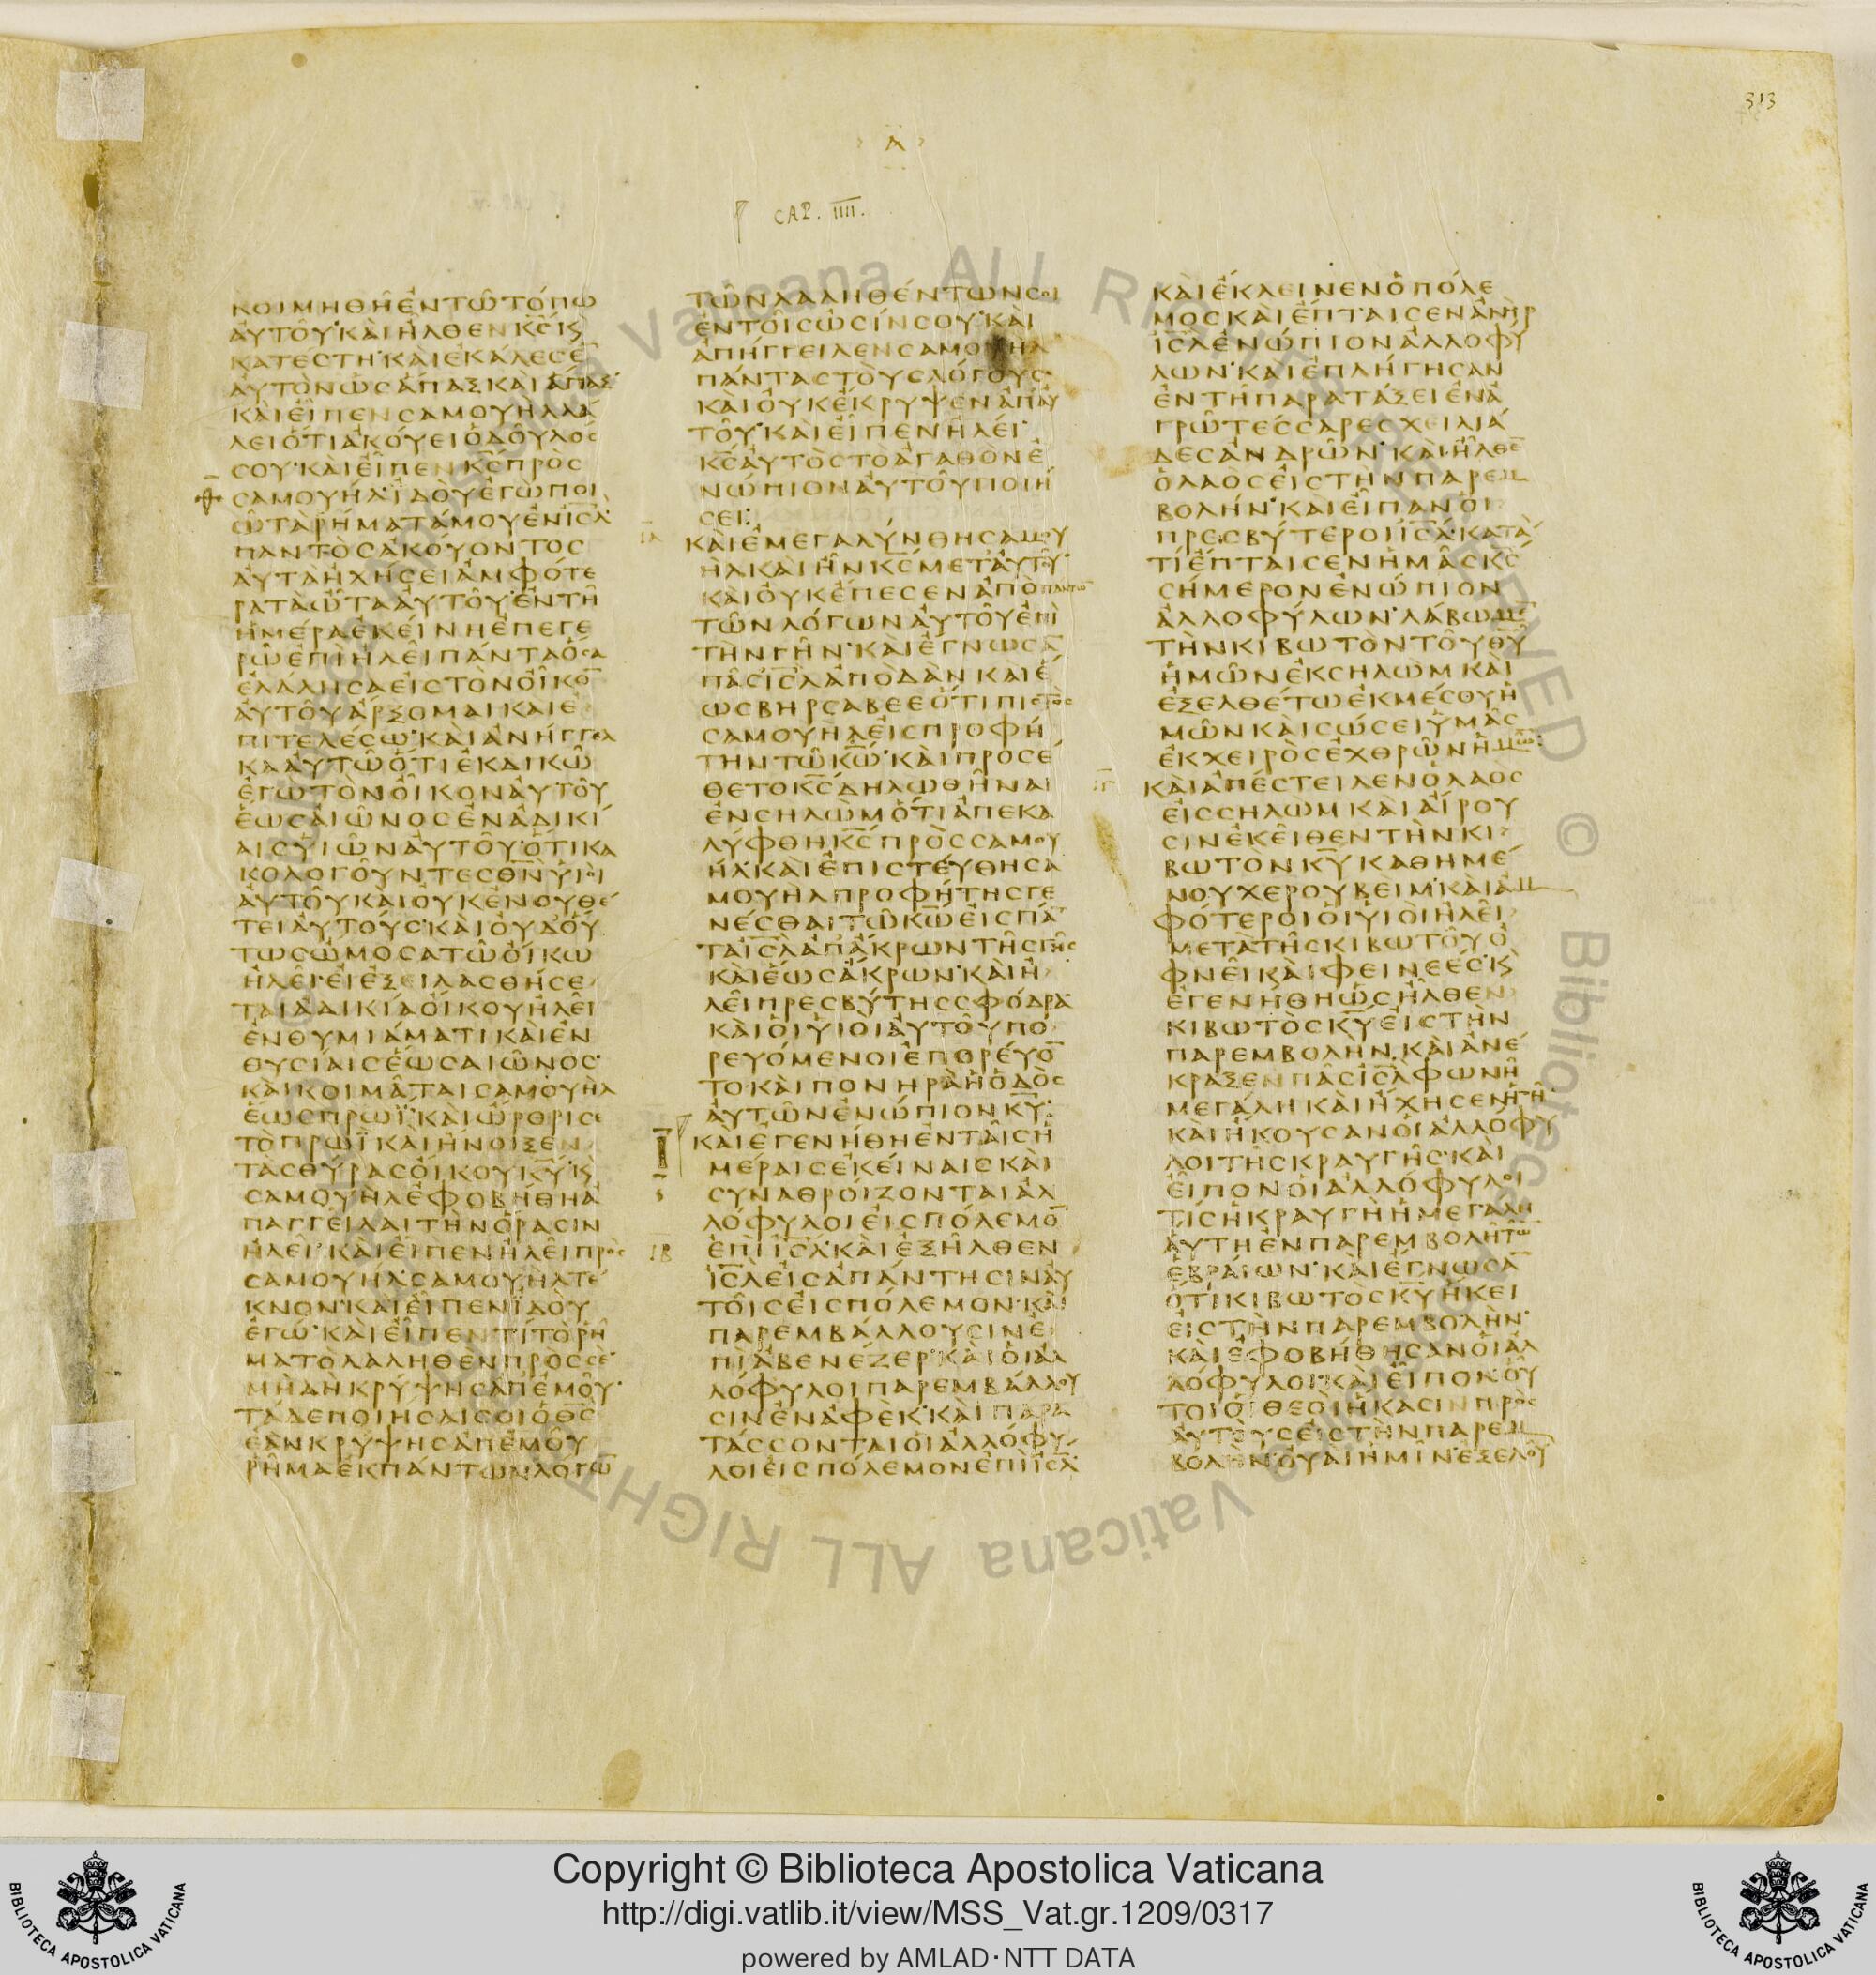 313
Α
CAP. IIII.
ΚΟΙΜΗΘΗΕΝΤΩΤΟΠΩ
ΑΥΤΟΥ ΚΑΙΗΛΘΕΝΚ̅Σ̅ΚΣ
ΚΑΤΕΣΤΗ ΚΑΙΕΚΑΛΕΣΕ̅
ΑΥΤΟΝΩΣΑΠΑΞΚΑΙΑΠΑΞ
ΚΑΙΕΙΠΕΝΣΑΜΟΥΗΛΛΑ
ΛΕΙΟΤΙΑΚΟΥΕΙΟΔΟΥΛΟΣ
ΣΟΥ ΚΑΙΕΙΠΕΝΚ̅Σ̅ΠΡΟΣ
ΣΑΜΟΥΗΛ ΙΔΟΥΕΓΩΠΟΙ
ΩΤΑΡΗΜΑΤΑΜΟΥΕΝΙ̅Σ̅Λ̅
ΠΑΝΤΟΣΑΚΟΥΟΝΤΟΣ
ΑΥΤΑΗΧΗΣΕΙΑΜΦΟΤΕ
ΡΑΤΑΩΤΑΑΥΤΟΥ ΕΝΤΗ
ΗΜΕΡΑΕΚΕΙΝΗΕΠΕΓΕ
ΡΩΕΠΙΗΛΕΙΠΑΝΤΑΟΣΑ
ΕΛΑΛΗΣΑΕΙΣΤΟΝΟΙΚΟ̅
ΑΥΤΟΥΑΡΞΟΜΑΙΚΑΙΕ
ΠΙΤΕΛΕΣΩ ΚΑΙΑΝΗΓΓΕΛ
ΚΑΑΥΤΩΟΤΙΕΚΔΙΚΩ
ΕΓΩΤΟΝΟΙΚΟΝΑΥΤΟΥ
ΕΩΣΑΙΩΝΟΣΕΝΑΔΙΚΙ
ΑΙΣΥΙΩΝΑΥΤΟΥ ΟΤΙΚΑ
ΚΟΛΟΓΟΥΝΤΕΣΘ̅Ν̅ΥΙΟΙ
ΑΥΤΟΥΚΑΙΟΥΚΕΝΟΥΘΕ
ΤΕΙΑΥΤΟΥΣ ΚΑΙΟΥΔΟΥ
ΤΩΣΩΜΟΣΑΤΩΟΙΚΩ
ΗΛΕΙ ΕΙΕΞΕΙΛΑΣΘΗΣΕ
ΤΑΙΑΔΙΚΙΑΟΙΚΟΥΗΛΕΙ
ΕΝΘΥΜΙΑΜΑΤΙΚΑΙΕΝ
ΘΥΣΙΑΙΣΕΩΣΑΙΩΝΟΣ
ΚΑΙΚΟΙΜΑΤΑΙΣΑΜΟΥΗΛ
ΕΩΣΠΡΩΙ ΚΑΙΩΡΘΡΙΣΕ
ΤΟΠΡΩΙΚΑΙΗΝΟΙΞΕΝ
ΤΑΣΘΥΡΑΣΟΙΚΟΥΚ̅Υ̅ΚΣ
ΣΑΜΟΥΗΛΕΦΟΒΗΘΗΑ
ΠΑΓΓΕΙΛΑΙΤΗΝΟΡΑΣΙΝ
ΗΛΕΙ ΚΑΙΕΙΠΕΝΗΛΕΙΠΡΟΣ
ΣΑΜΟΥΗΛ ΣΑΜΟΥΗΛΤΕ
ΚΝΟΝ ΚΑΙΕΙΠΕΝΙΔΟΥ
ΕΓΩ ΚΑΙΕΙΠΕΝΤΙΤΟΡΗ
ΜΑΤΟΛΑΛΗΘΕΝΠΡΟΣΣΕ
ΜΗΔΗΚΡΥΨΗΣΑΠΕΜΟΥ
ΤΑΔΕΠΟΙΗΣΑΙΣΟΙΟΘ̅Σ̅
ΕΑΝΚΡΥΨΗΣΑΠΕΜΟΥ
ΡΗΜΑΕΚΠΑΝΤΩΝΛΟΓΩ̅
ΤΩΝΛΑΛΗΘΕΝΤΩΝΣΟΙ
ΕΝΤΟΙΣΩΣΙΝΣΟΥ ΚΑΙ
ΑΠΗΓΓΕΙΛΕΝΣΑΜΟΥΗΛ
ΠΑΝΤΑΣΤΟΥΣΛΟΓΟΥΣ
ΚΑΙΟΥΚΕΚΡΥΨΕΝΑΠΑΥ
ΤΟΥ ΚΑΙΕΙΠΕΝΗΛΕΙ
Κ̅Σ̅ΑΥΤΟΣΤΟΑΓΑΘΟΝΕ
ΝΩΠΙΟΝΑΥΤΟΥΠΟΙΗ
ΣΕΙ:
ΙΑ
ΚΑΙΕΜΕΓΑΛΥΝΘΗΣΑΜΟΥ
ΗΛΚΑΙΗΝΚ̅Σ̅ΜΕΤΑΥΤΟΥ
ΚΑΙΟΥΚΕΠΕΣΕΝΑΠΟΠΑΝΤΩ̅
ΤΩΝΛΟΓΩΝΑΥΤΟΥΕΠΙ
ΤΗΝΓΗΝ ΚΑΙΕΓΝΩΣΑ̅
ΠΑΣΙ̅Σ̅Λ̅ΑΠΟΔΑΝΚΑΙΕ
ΩΣΒΗΡΣΑΒΕΕΟΤΙΠΙΣΤΟΣ
ΣΑΜΟΥΗΛΕΙΣΠΡΟΦΗ
ΤΗΝΤΩΚ̅Ω̅ ΚΑΙΠΡΟΣΕ
ΘΕΤΟΚ̅Σ̅ΔΗΛΩΘΗΝΑΙ
ΕΝΣΗΛΩΜΟΤΙΑΠΕΚΑ
ΛΥΦΘΗΚ̅Σ̅ΠΡΟΣΣΑΜΟΥ
ΗΛ ΚΑΙΕΠΙΣΤΕΥΘΗΣΑ
ΜΟΥΗΛΠΡΟΦΗΤΗΣΓΕ
ΝΕΣΘΑΙΤΩΚ̅Ω̅ΕΙΣΠΑ̅
ΤΑΙ̅Σ̅Λ̅ΑΠΑΚΡΩΝΤΗΣΓΗΣ
ΚΑΙΕΩΣΑΚΡΩΝ ΚΑΙΗ
ΛΕΙΠΡΕΣΒΥΤΗΣΣΦΟΔΡΑ
ΚΑΙΟΙΥΙΟΙΑΥΤΟΥΠΟ
ΡΕΥΟΜΕΝΟΙΕΠΟΡΕΥΟ̅
ΤΟΚΑΙΠΟΝΗΡΑΗΟΔΟΣ
ΑΥΤΩΝΕΝΩΠΙΟΝΚ̅Υ̅:
ΚΑΙΕΓΕΝΗΘΗΕΝΤΑΙΣΗ
ΜΕΡΑΙΣΕΚΕΙΝΑΙΣΚΑΙ
ΣΥΝΑΘΡΟΙΖΟΝΤΑΙΑΛ
ΛΟΦΥΛΟΙΕΙΣΠΟΛΕΜΟ̅
ΙΒ
ΕΠΙΙ̅Σ̅Λ̅ ΚΑΙΕΞΗΛΘΕΝ
Ι̅Σ̅Λ̅ΕΙΣΑΠΑΝΤΗΣΙΝΑΥ
ΤΟΙΣΕΙΣΠΟΛΕΜΟΝ ΚΑΙ
ΠΑΡΕΜΒΑΛΛΟΥΣΙΝΕ
ΠΙΑΒΕΝΕΖΕΡ ΚΑΙΟΙΑΛ
ΛΟΦΥΛΟΙΠΑΡΕΜΒΑΛΛΟΥ
ΣΙΝΕΝΑΦΕΚ ΚΑΙΠΑΡΑ
ΤΑΣΣΟΝΤΑΙΟΙΑΛΛΟΦΥ
ΛΟΙΕΙΣΠΟΛΕΜΟΝΕΠΙΙ̅Σ̅Λ̅
ΚΑΙΕΚΛΕΙΝΕΝΟΠΟΛΕ
ΜΟΣΚΑΙΕΠΤΑΙΣΕΝΑΝΗΡ
Ι̅Σ̅Λ̅ΕΝΩΠΙΟΝΑΛΛΟΦΥ
ΛΩΝ ΚΑΙΕΠΛΗΓΗΣΑΝ
ΕΝΤΗΠΑΡΑΤΑΞΕΙΕΝΑ
ΓΡΩΤΕΣΣΑΡΕΣΧΕΙΛΙΑ
ΔΕΣΑΝΔΡΩΝ ΚΑΙΗΛΘΕ̅
ΟΛΑΟΣΕΙΣΤΗΝΠΑΡΕΜ
ΒΟΛΗΝ ΚΑΙΕΙΠΑΝΟΙ
ΠΡΕΣΒΥΤΕΡΟΙΙ̅Σ̅Λ̅ ΚΑΤΑ
ΤΙΕΠΤΑΙΣΕΝΗΜΑΣΚ̅Σ̅
ΣΗΜΕΡΟΝΕΝΩΠΙΟΝ
ΑΛΛΟΦΥΛΩΝ ΛΑΒΩΜΕ̅
ΤΗΝΚΙΒΩΤΟΝΤΟΥΘ̅Υ̅
ΗΜΩΝΕΚΣΗΛΩΜΚΑΙ
ΕΞΕΛΘΕΤΩΕΚΜΕΣΟΥΗ
ΜΩΝΚΑΙΣΩΣΕΙΥΜΑΣ
ΕΚΧΕΙΡΟΣΕΧΘΡΩΝΗΜΩ̅:
ΙΓ
ΚΑΙΑΠΕΣΤΕΙΛΕΝΟΛΑΟΣ
ΕΙΣΣΗΛΩΜΚΑΙΑΙΡΟΥ
ΣΙΝΕΚΕΙΘΕΝΤΗΝΚΙ
ΒΩΤΟΝΚ̅Υ̅ΚΑΘΗΜΕ
ΝΟΥΧΕΡΟΥΒΕΙΜ ΚΑΙΑΜ
ΦΟΤΕΡΟΙΟΙΥΙΟΙΗΛΕΙ
ΜΕΤΑΤΗΣΚΙΒΩΤΟΥΟ
ΦΝΕΙΚΑΙΦΕΙΝΕΕΣ ΚΣ
ΕΓΕΝΗΘΗΩΣΗΛΘΕΝ
ΚΙΒΩΤΟΣΚ̅Υ̅ΕΙΣΤΗΝ
ΠΑΡΕΜΒΟΛΗΝ ΚΑΙΑΝΕ
ΚΡΑΞΕΝΠΑΣΙ̅Σ̅Λ̅ΦΩΝΗ
ΜΕΓΑΛΗΚΑΙΗΧΗΣΕΝΗΓΗ
ΚΑΙΗΚΟΥΣΑΝΟΙΑΛΛΟΦΥ
ΛΟΙΤΗΣΚΡΑΥΓΗΣ ΚΑΙ
ΕΙΠΟΝΟΙΑΛΛΟΦΥΛΟΙ
ΤΙΣΗΚΡΑΥΓΗΗΜΕΓΑΛΗ
ΑΥΤΗΕΝΠΑΡΕΜΒΟΛΗΤΩ̅
ΕΒΡΑΙΩΝ ΚΑΙΕΓΝΩΣΑ̅
ΟΤΙΚΙΒΩΤΟΣΚ̅Υ̅ΗΚΕΙ
ΕΙΣΤΗΝΠΑΡΕΜΒΟΛΗΝ
ΚΑΙΕΦΟΒΗΘΗΣΑΝΟΙΑΛ
ΛΟΦΥΛΟΙ ΚΑΙΕΙΠΟΝ ΟΥ
ΤΟΙΟΙΘΕΟΙΗΚΑΣΙΝΠΡΟΣ
ΑΥΤΟΥΣΕΙΣΤΗΝΠΑΡΕΜ
ΒΟΛΗΝ ΟΥΑΙΗΜΙΝ ΕΞΕΛΟΥ
Vaticana ALL RIGHTS RESERVED © Biblioteca Vaticana ALL RIGHTS
BIBLIOTECA APOSTOLICA VATICANA
Copyright © Biblioteca Apostolica Vaticana
http://digi.vatlib.it/view/MSS_Vat.gr.1209/0317
powered by AMLAD·NTT DATA
BIBLIOTECA APOSTOLICA VATICANA